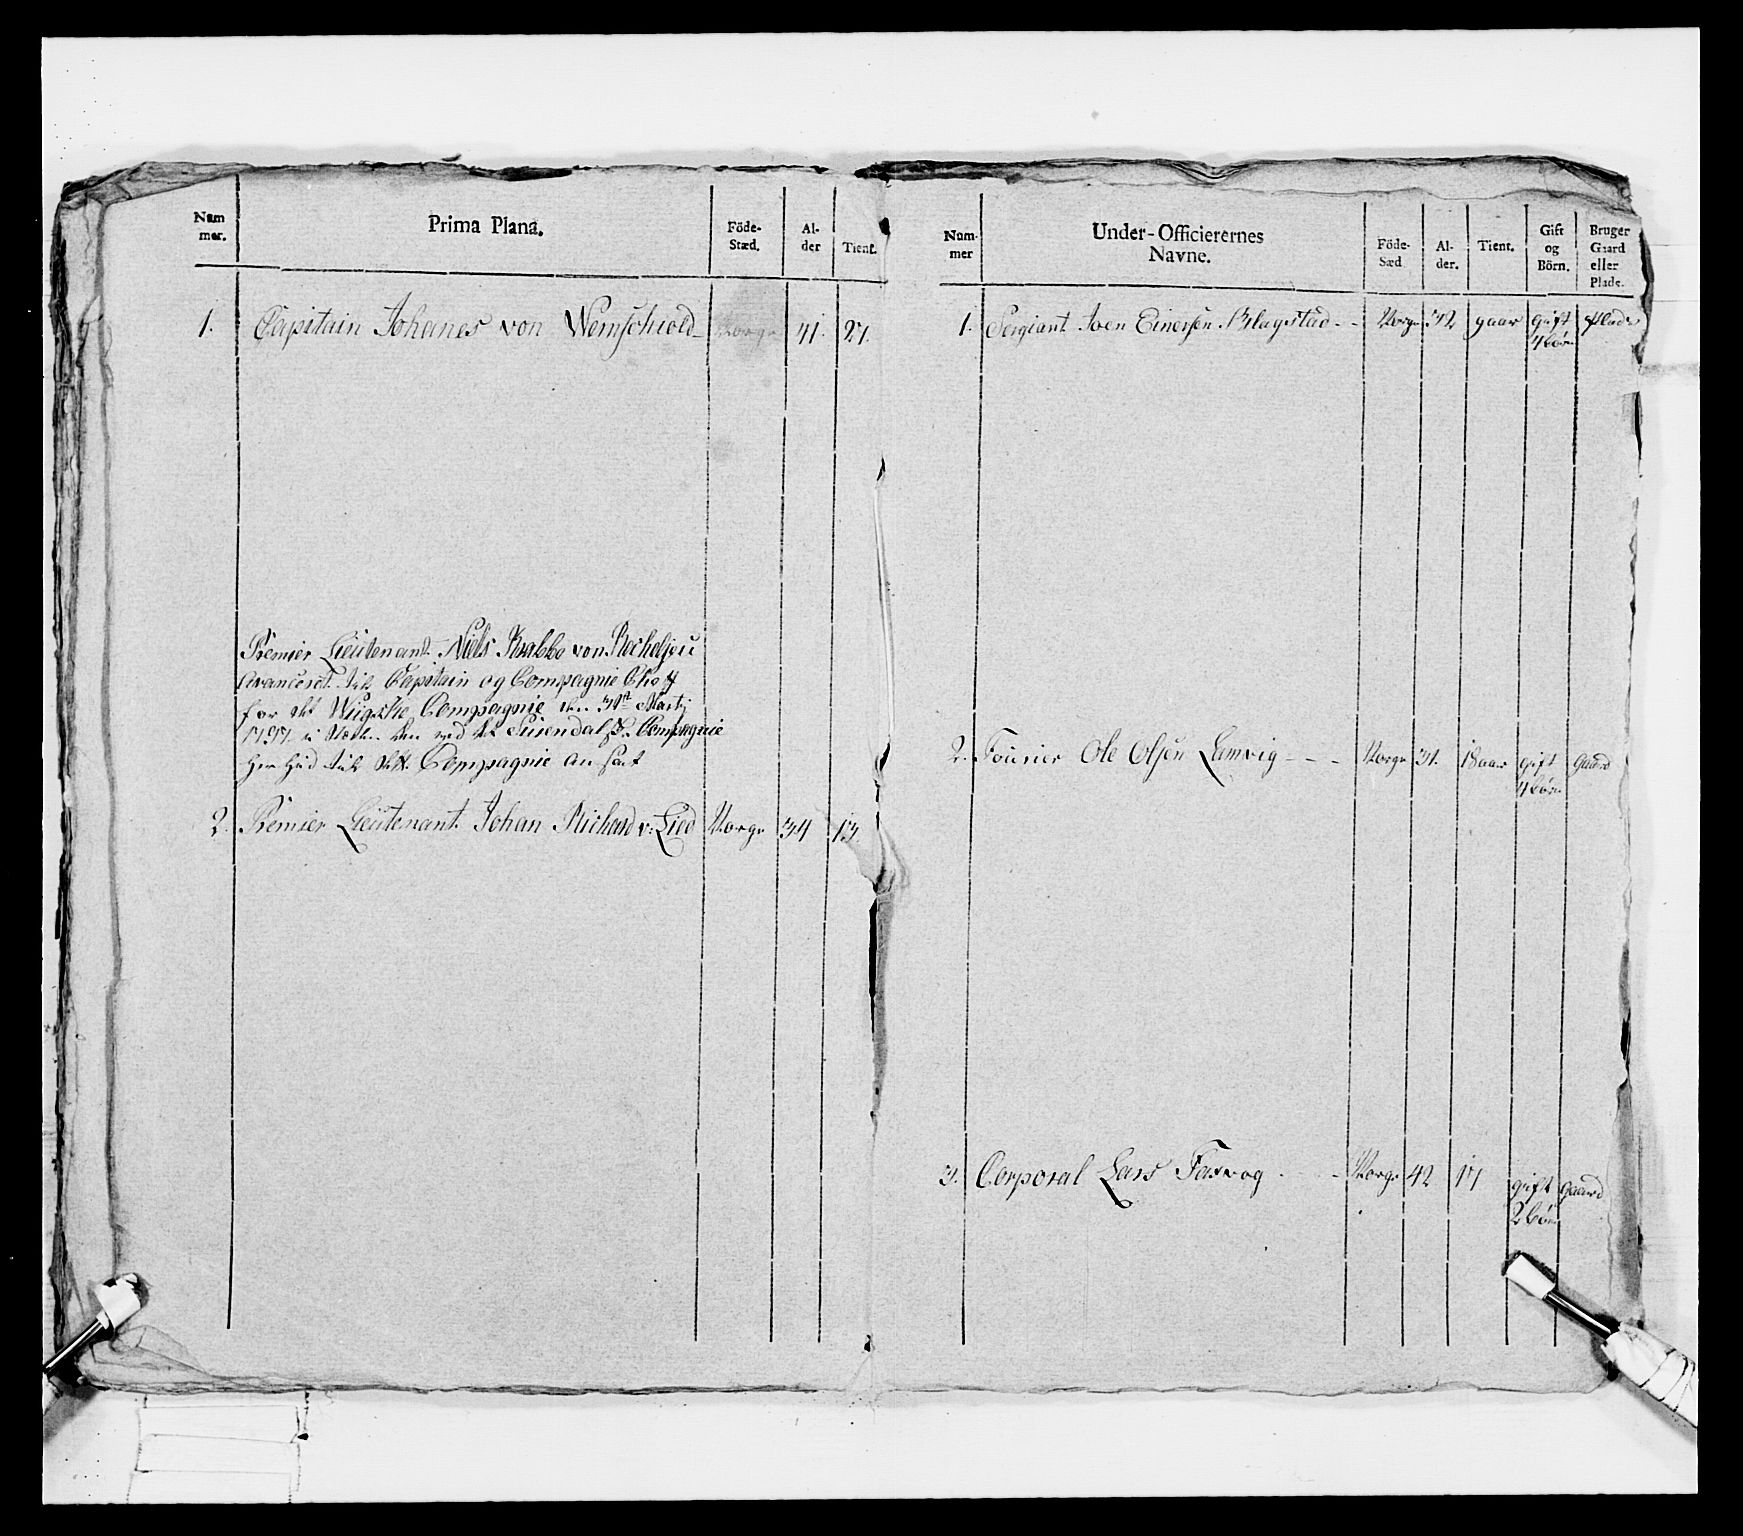 Num
mer.
Prima Plana.
Föde-
Stæd.
Al-
der
Tient.
1. Capitain Johanes von Wemschiold Norge 41. 27.
Premier Lieutenant Niels Krabbe von
Avanceret til Capitain og Compagnie Chef
for det Compagnie den 31st Martj
1797. i Stæden den ved det Compagnie
til dette Compagnie an sat
2. Premier Lieutenant Johan Richard v: Lied Norge 34 13.
Num-
mer
Under-Officierernes
Navne.
Föde-
Sæd
Al-
der.
Tient.
Gift
og
Börn.
Bruger
Gaard
eller
Plads.
1. Sergiant Iven Einersen Blagstad - - Norge 32 gaar gift Plads
4 bör
2. Fourier Ole Olsen Lemvig - - - Norge 31. 18 aar gift Gaard
4 bör
3. Corporal Lars - - Norge 42 17 gift Gaard
2 bör